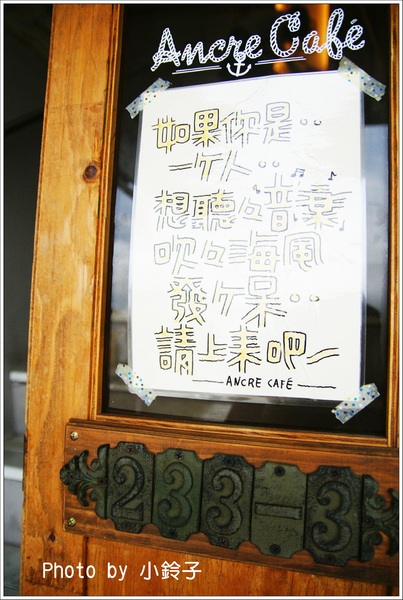 Ancre Café
如果你是..
一个人..
想聽點音樂
吹點海風
發个呆..
請上來吧~
ANCRE CAFÉ
233-3
Photo by 小鈴子